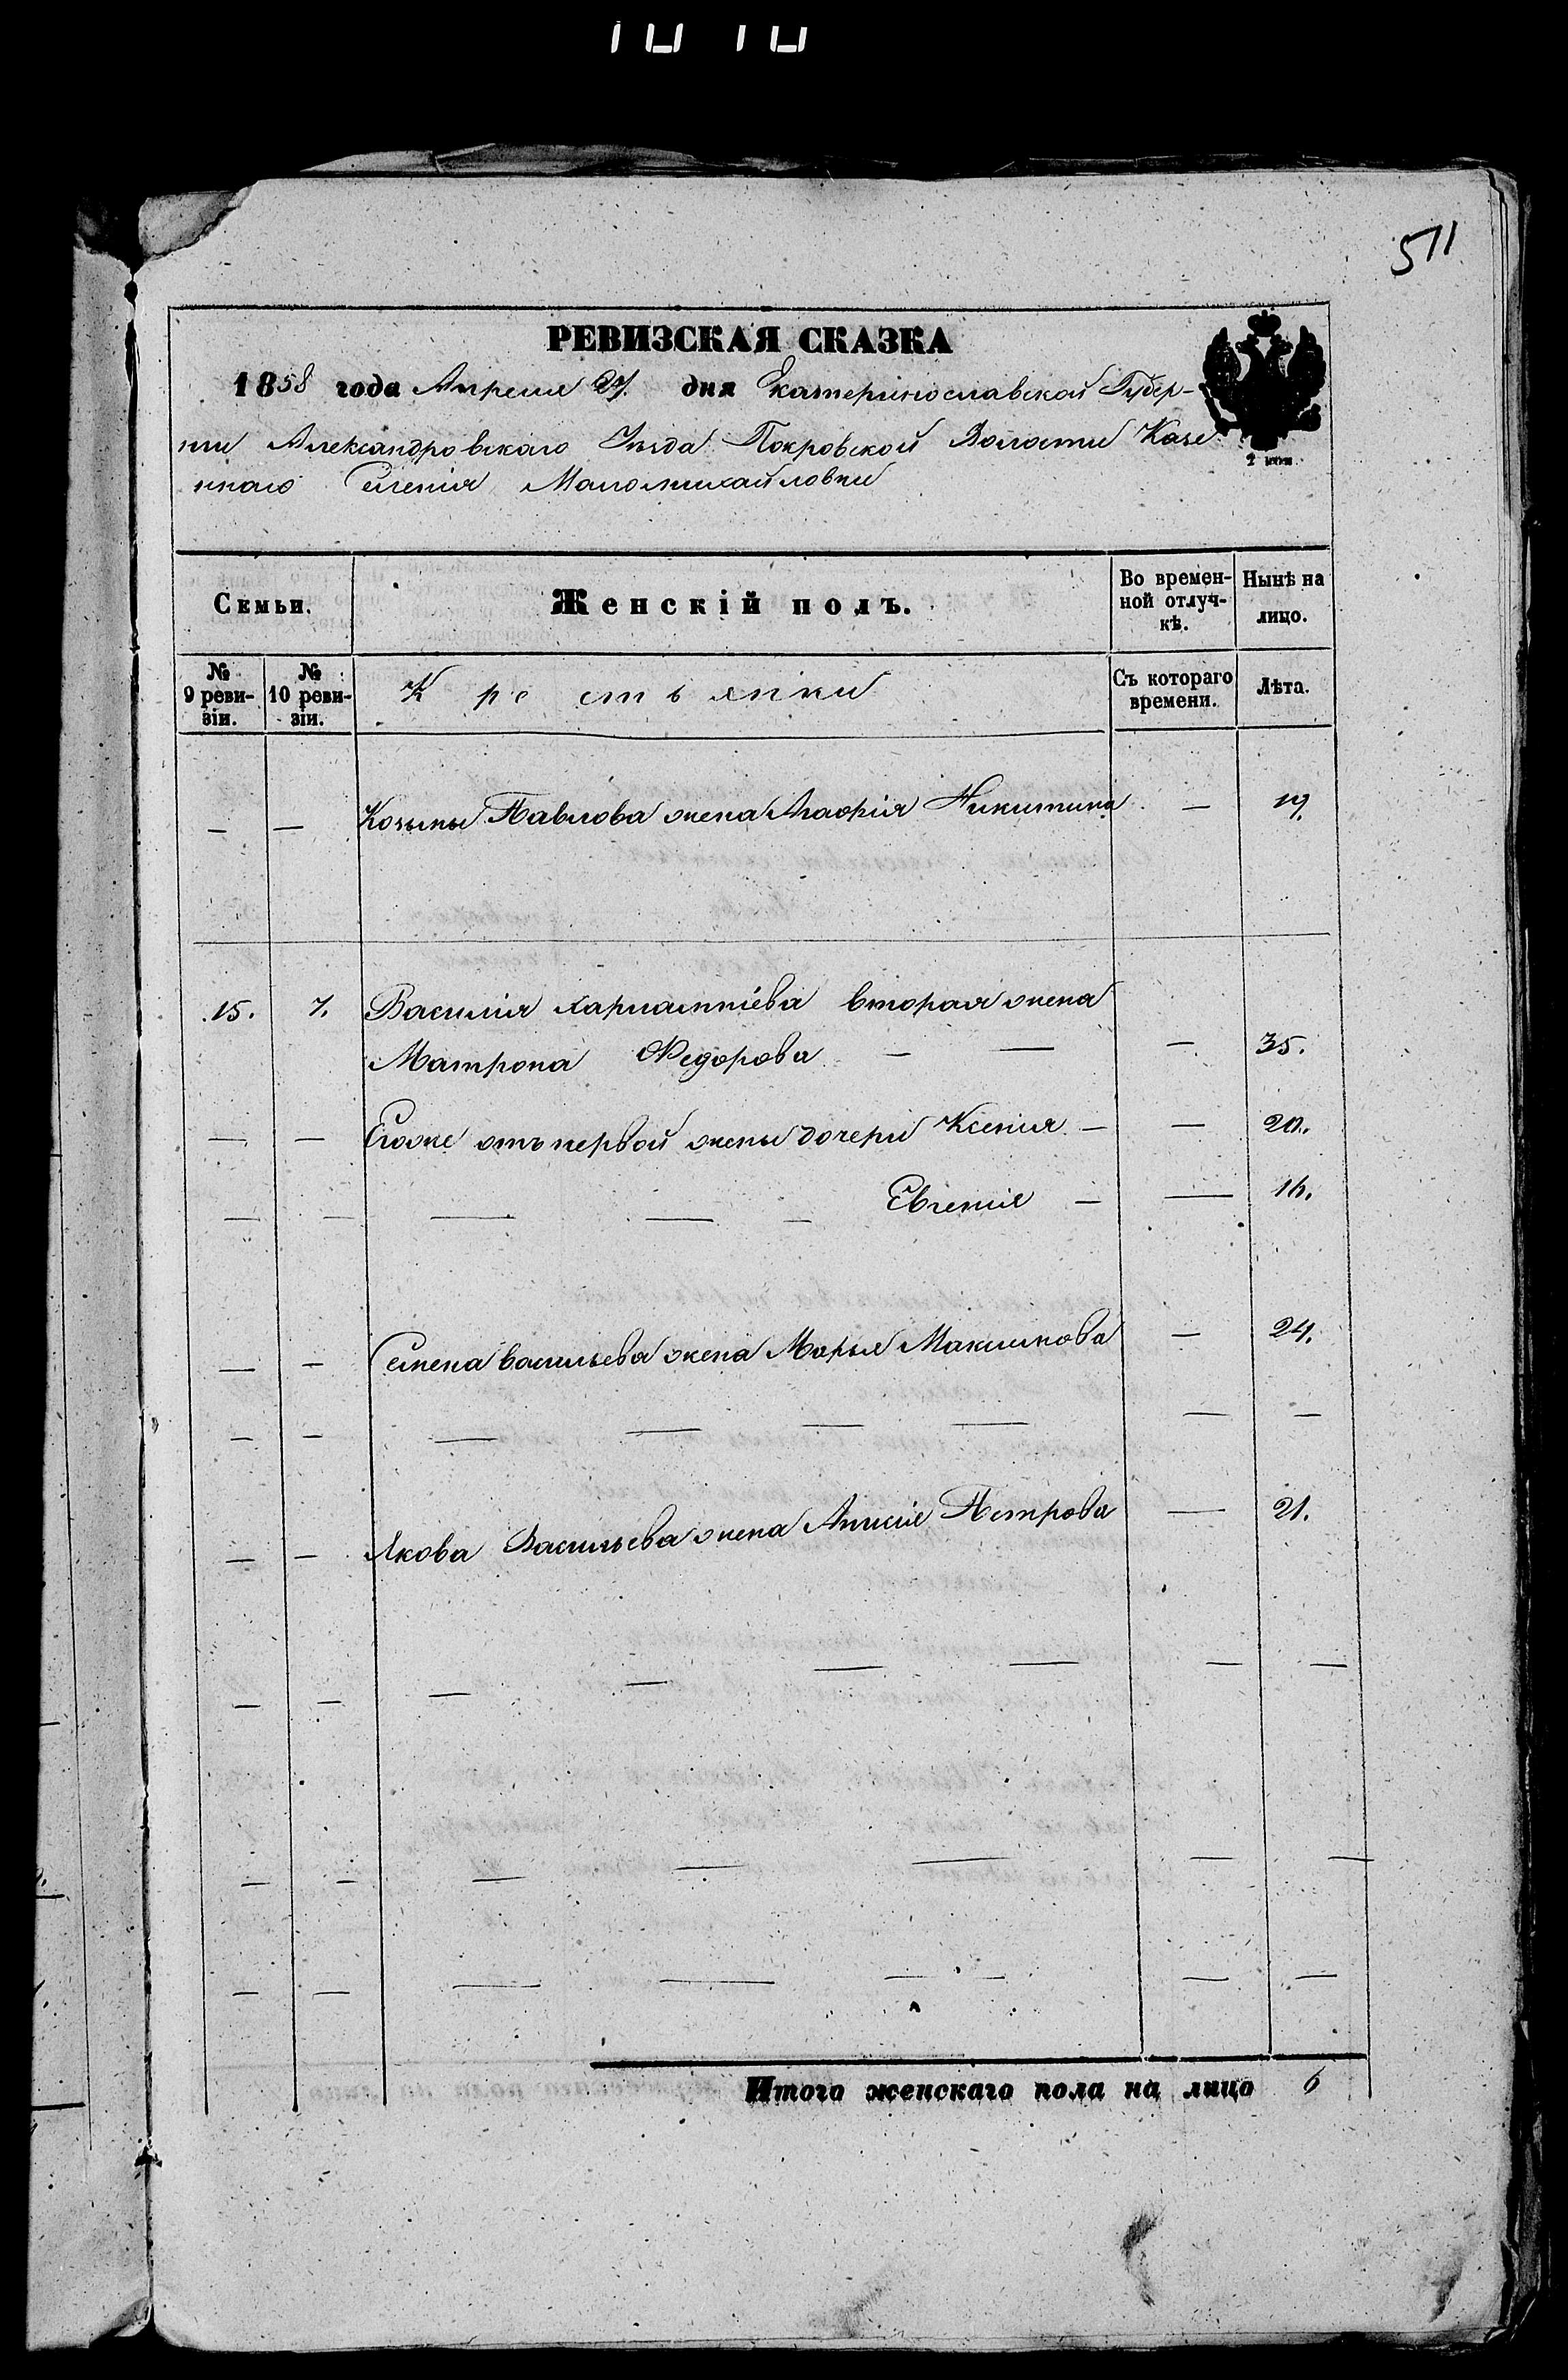 511
РЕВИЗСКАЯ СКАЗКА
1858 года Апреля 27. дня Екатеринославской Губер-
нии Александровскаго Уѣзда Покровской Волости Казе
ннаго Селенія Маломихайловки
2 коп.
Семьи. Женскій полъ. Во времен-ной отлуч-кѣ. Нынѣ на лицо.
№ 9 реви-зіи. № 10 реви-зіи. Крестьянки Съ котораго времени. Лѣта.
— — Козьмы Павлова жена Агафия Никитина — 19.
15. 7. Василия Харлампіева вторая жена
Матрона Федорова — — — 35.
— — Егоже отъ первой жены дочери Ксения — — 20.
— — — — — Евгения — — 16.
— — Семена Васильева жена Марья Максимова — 24.
— — — — — — — —
— — Якова Васильева жена Анисия Петрова — 21.
— — — — — — — —
— — — — — — —
— — — — — — — —
Итого женскаго пола на лицо 6